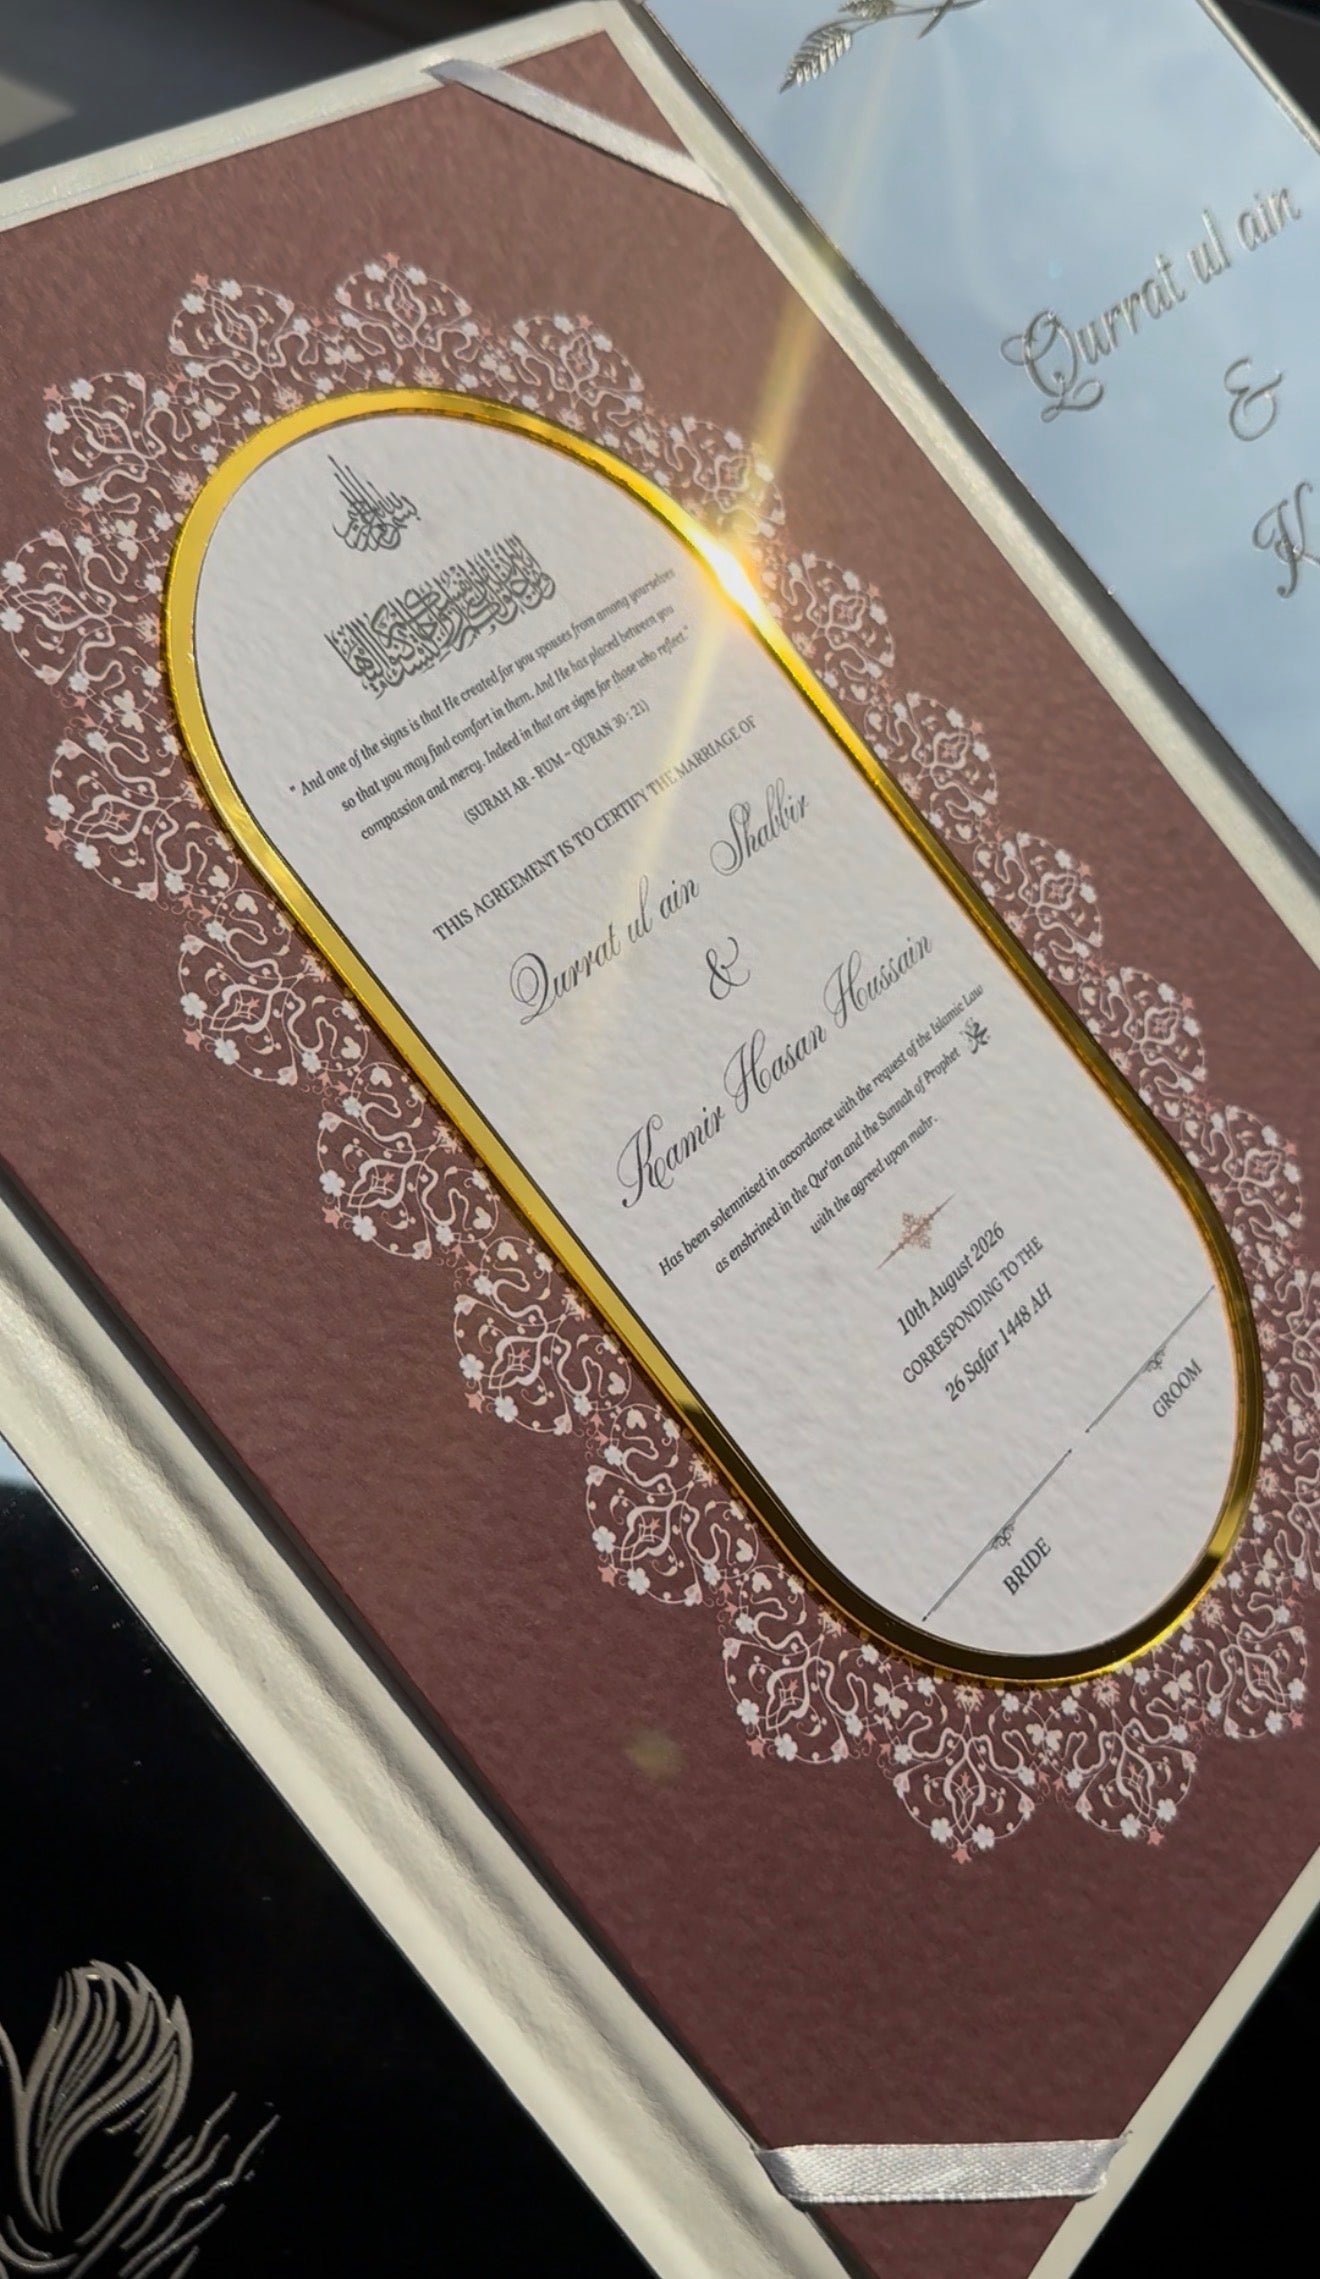 " And one of the signs is that He created for you spouses from among yourselves
so that you may find comfort in them. And He has placed between you
compassion and mercy. Indeed in that are signs for those who reflect."
(SURAH AR - RUM ~ QURAN 30 : 21)
THIS AGREEMENT IS TO CERTIFY THE MARRIAGE OF
Qurrat ul ain Shabbir
&
Kamir Hasan Hussain
Has been solemnised in accordance with the request of the Islamic Law
as enshrined in the Qur'an and the Sunnah of Prophet ﷺ
with the agreed upon mahr.
10th August 2026
CORRESPONDING TO THE
26 Safar 1448 AH
BRIDE
GROOM
Qurrat ul ain
&
K